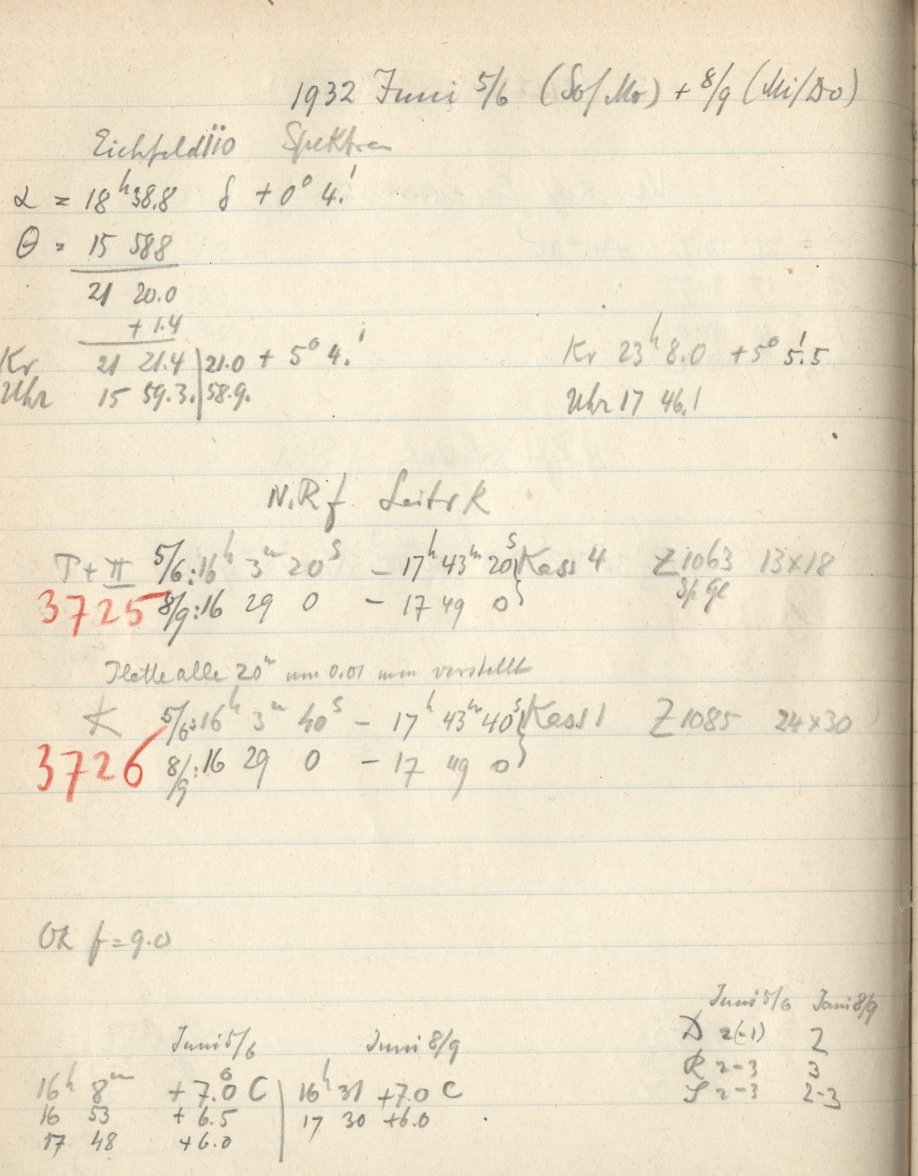 1932 Juni 5/6 (So/Mo) + 8/9 (Mi/Do)
Eichfeld 110 Spektren
α = 18ʰ 38.8 δ + 0° 4.'1
Θ = 15 58.8
21 20.0
+ 1.4
Kr 21 21.4 | 21.0 + 5° 4.'1 Kr 23ʰ 8.0 + 5° 5.'5
Uhr 15 59.3. | 58.9. Uhr 17 46.1
N.Rf. Leitrk
T + II 5/6: 16ʰ 3ᵐ 20ˢ – 17ʰ 43ᵐ 20ˢ } Kass 4 Z 1063 13×18
3725 8/9: 16 29 0 – 17 49 0 } Sp Ge
Platte alle 20ᵐ um 0.01 mm verstellt
K 5/6: 16ʰ 3ᵐ 40ˢ – 17ʰ 43ᵐ 40ˢ } Kass 1 Z 1085 24×30
3726 8/9: 16 29 0 – 17 49 0 }
Ok f = 9.0
Juni 5/6 Juni 8/9
D 2(-1) 2
R 2-3 3
S 2-3 2-3
Juni 5/6 Juni 8/9
16ʰ 8ᵐ + 7.°0 C | 16ʰ 31 + 7.0 C
16 53 + 6.5 | 17 30 + 6.0
17 48 + 6.0